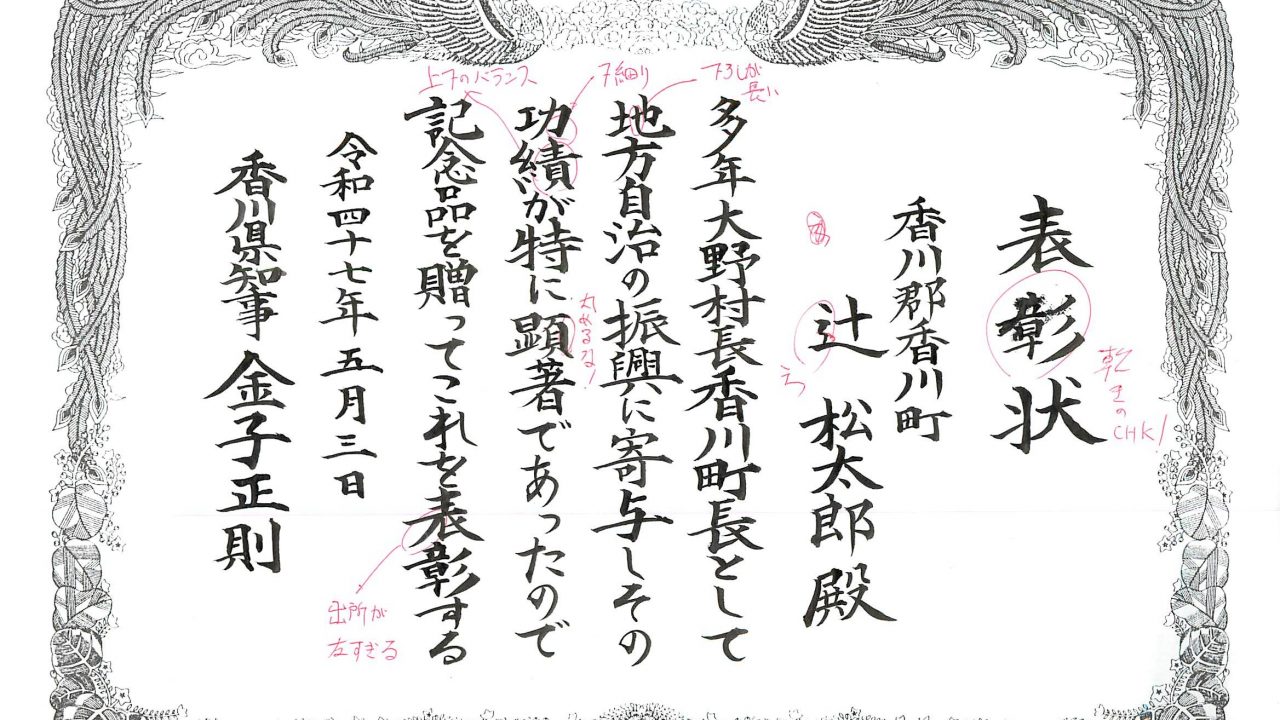 表彰状
香川郡香川町
辻 松太郎殿
多年大野村長香川町長として
地方自治の振興に寄与しその
功績が特に顕著であったので
記念品を贈ってこれを表彰する
令和四十七年五月三日
香川県知事 金子正則
乾きのCHK!
長い
丸めるな!
上下のバランス
出所が
左すぎる